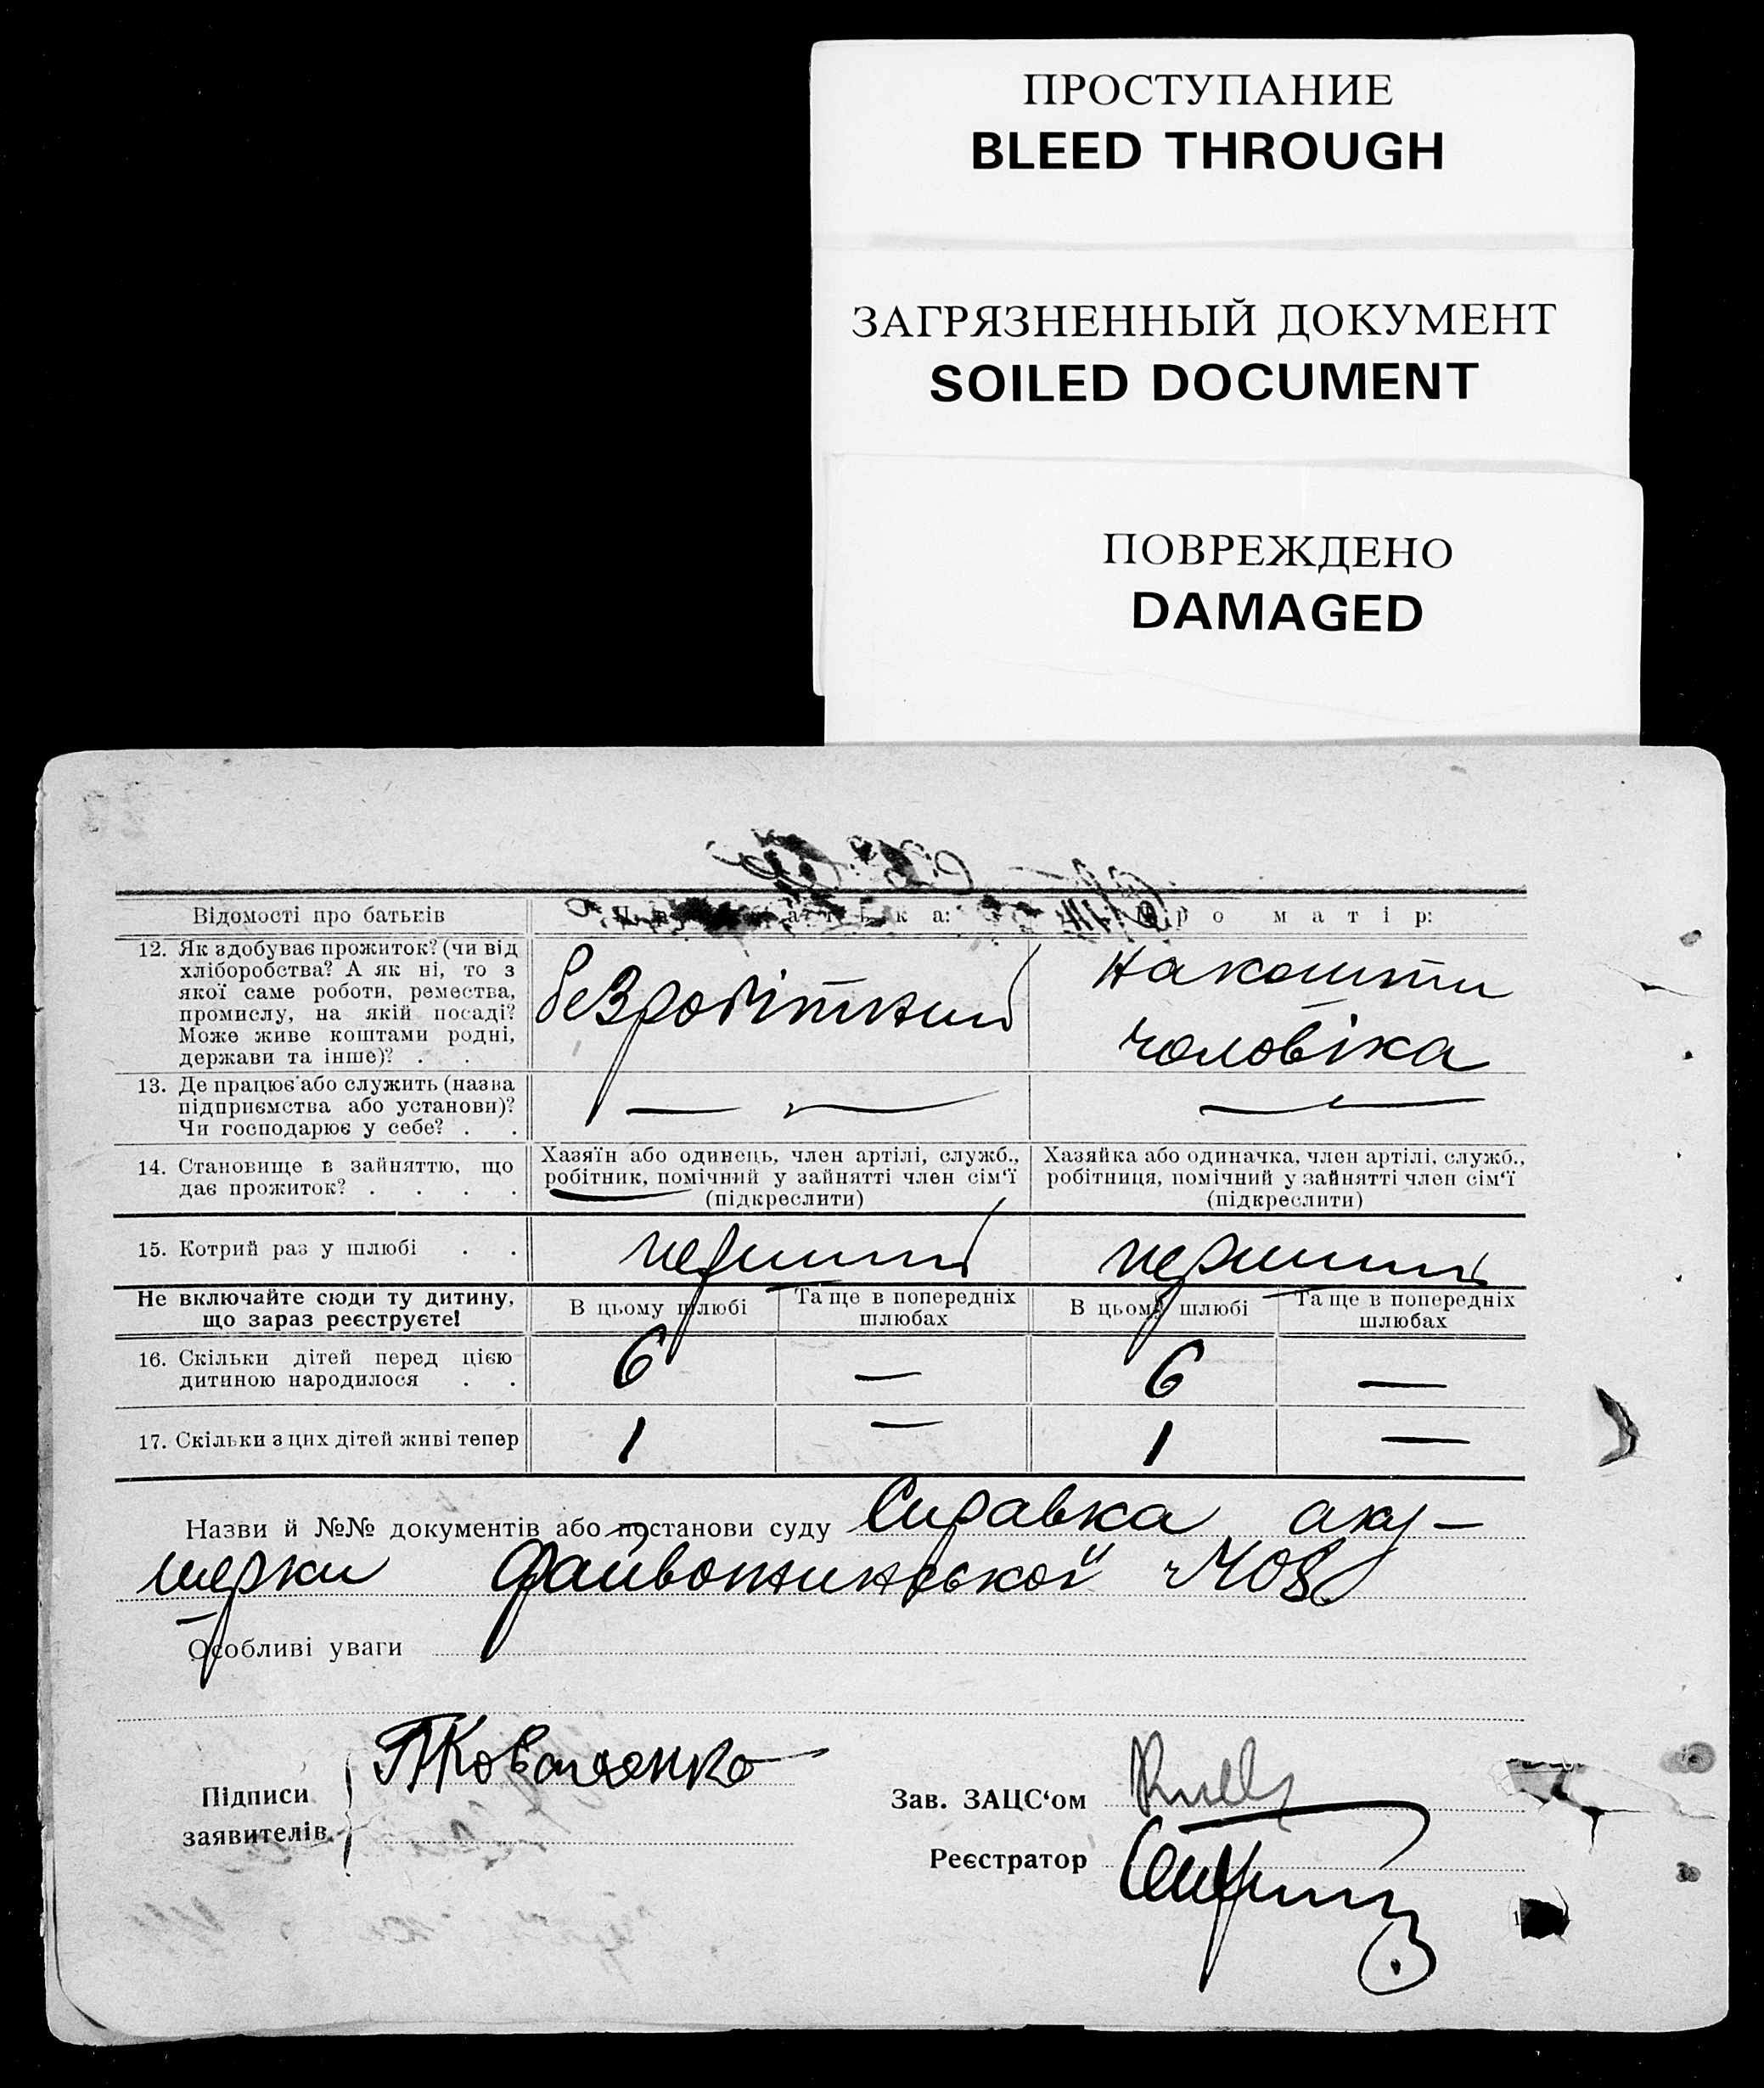 ПРОСТУПАНИЕ
BLEED THROUGH
ЗАГРЯЗНЕННЫЙ ДОКУМЕНТ
SOILED DOCUMENT
ПОВРЕЖДЕНО
DAMAGED
Відомості про батьків
Про батька:
Про матір:
12. Як здобуває прожиток? (чи від
хліборобства? А як ні, то з
якої саме роботи, ремества,
промислу, на якій посаді?
Може живе коштами родні,
держави та інше)? . .
безробітний
на кошти
чоловіка
13. Де працює або служить (назва
підприємства або установи)?
Чи господарює у себе? . .
— —
—
14. Становище в зайняттю, що
дає прожиток? . . . .
Хазяїн або одинець, член артілі, служб.,
робітник, помічний у зайнятті член сім'ї
(підкреслити)
Хазяйка або одиначка, член артілі, служб.,
робітниця, помічний у зайнятті член сім'ї
(підкреслити)
15. Котрий раз у шлюбі . .
перший
перший
Не включайте сюди ту дитину,
що зараз реєструєте!
В цьому шлюбі
Та ще в попередніх
шлюбах
В цьому шлюбі
Та ще в попередніх
шлюбах
16. Скільки дітей перед цією
дитиною народилося . .
6 — 6 —
17. Скільки з цих дітей живі тепер
1 — 1 —
Назви й №№ документів або постанови суду Справка аку-
шерки
Особливі уваги
Підписи
заявителів
ПКоваленко
Зав. ЗАЦС'ом
Реєстратор